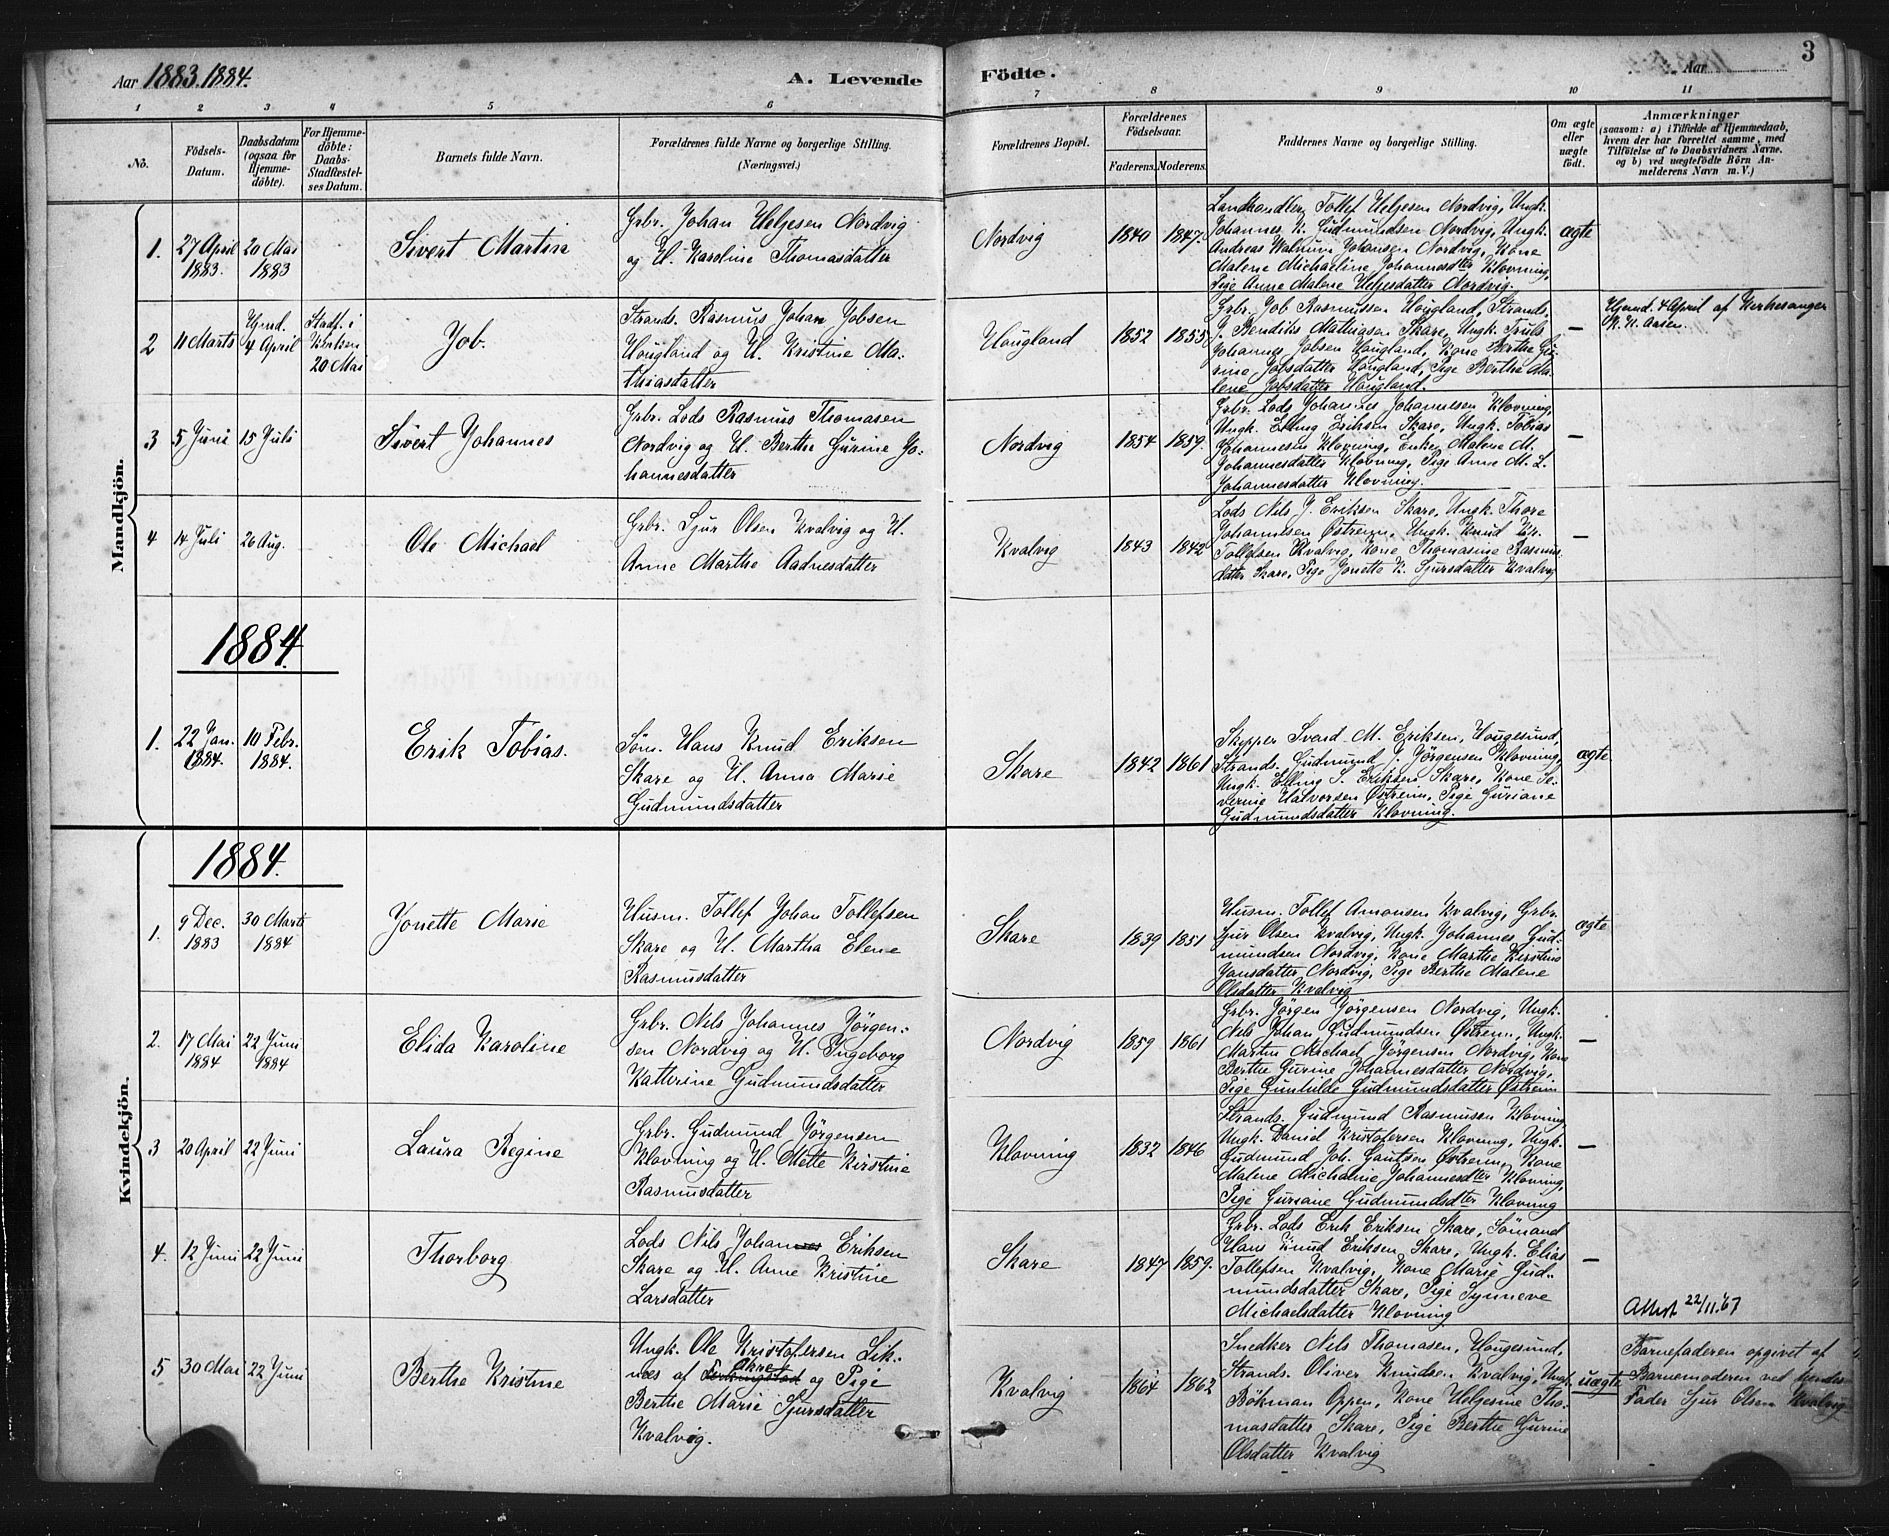 Aar 1883. 1884.
A. Levende Födte.
Aar
3
1 2 3 4 5 6 7 8 9 10 11
No.
Födsels-
Datum.
Daabsdatum
(ogsaa for
Hjemme-
döbte).
For Hjemme-
döbte:
Daabs-
Stadfæstel-
ses Datum.
Barnets fulde Navn.
Forældrenes fulde Navne og borgerlige Stilling.
(Næringsvei.)
Forældrenes Bopæl.
Forældrenes
Födselsaar.
Faderens. Moderens.
Faddernes Navne og borgerlige Stilling.
Om ægte
eller
uægte
födt.
Anmærkninger
(saasom: a) i Tilfælde af Hjemmedaab,
hvem der har forrettet samme, med
Tilföielse af to Daabsvidners Navne,
og b) ved uægtefödte Börn An-
melderens Navn m. V.)
Mandkjön.
1. 27 April
1883.
20 Mai
1883
Sivert Martin
Grbr. Johan Helgesen Nordvig
og H. Karoline Thomasdatter
Nordvig
1840 1847.
Landhandler Tollef Helgesen Nordvig, Ungk.
Johannes K. Gudmundsen Nordvig, Ungk.
Andreas Johansen Nordvig, Kone
Malene Michaeline Johannesdter Klovning,
Pige Anne Malene Helgesdatter Nordvig.
ægte
2 11 Marts
Hjmd.
4 April
Stadf. i
Kirken
20 Mai
Job.
Strands. Rasmus Johan Jobsen
Hougland og H. Kristine Ma-
thiasdatter
Hougland
1852 1855
Grbr. Job Rasmussen Hougland, Strands.
J. Bendiks Mathiasen Skare, Ungk.
Johannes Jobsen Hougland, Kone Berthe Gu-
rine Jobsdatter Hougland, Pige Berthe Ma-
lene Jobsdatter Hougland.
—
Hjmd. 4 April af Kirkesanger
K. H. Aasen.
3 5 Juni
15 Juli
Sivert Johannes
Grbr. Lods Rasmus Thomasen
Nordvig og H. Berthe Gurine Jo-
hannesdatter
Nordvig
1854 1859.
Grbr. Lods Johannes Johannesen Klovning,
Ungk. Elling Eriksen Skare, Ungk. Tobias
Johannesen Klovning, Enke Malene M.
Johannesdatter Klovning, Pige Anne M. L.
Johannesdatter Klovning.
—
4 14 Juli
26 Aug.
Ole Michael
Grbr. Sjur Olsen Kvalvig og H.
Anne Marthe Aadnesdatter
Kvalvig
1843 1842
Lods Nils J. Eriksen Skare, Ungk. Thore
Johannesen Østreim, Ungk. Knud Kr.
Tollefsen Kvalvig, Kone Thomasine Rasmus-
datter Skare, Pige Jonette K. Sjursdatter Kvalvig
—
1884.
1. 22 Jan.
1884.
10 Febr.
1884.
Erik Tobias.
Søm. Hans Knud Eriksen
Skare og H. Anna Marie
Gudmundsdatter
Skare
1842 1861
Skipper Svend M. Eriksen, Hougesund,
Strands. Gudmund J. Jörgensen Klovning,
Ungk. Elling S. Eriksen Skare, Kone Se-
verine Halvorsen Østreim, Pige Guriane
Gudmundsdatter Klovning.
ægte
Kvindekjön.
1884.
1. 9 Dec.
1883
30 Marts
1884
Jonette Marie
Husm. Tollef Johan Tollefsen
Skare og H. Martha Elene
Rasmusdatter
Skare
1839 1851
Husm. Tollef Amonsen Kvalvig, Grbr.
Sjur Olsen Kvalvig, Ungk. Johannes Gud-
mundsen Nordvig, Kone Marthe Kirstine
Jansdatter Nordvig, Pige Berthe Malene
Olsdatter Kvalvig
ægte
2. 17 Mai
1884
22 Juni
1884
Elida Karoline
Grbr. Nils Johannes Jörgen-
sen Nordvig og H. Ingeborg
Kathrine Gudmundsdatter
Nordvig
1859 1861
Grbr. Jörgen Jörgensen Nordvig, Ungk.
Nils Johan Gudmundsen Østreim, Ungk.
Martin Michael Jörgensen Nordvig, Kone
Berthe Gurine Johannesdatter Nordvig,
Pige Gunhilde Gudmundsdatter Østreim
—
3 20 April
22 Juni
Laura Regine
Grbr. Gudmund Jörgensen
Klovning og H. Mette Kirstine
Rasmusdatter
Klovning
1832 1846
Strands. Gudmund Rasmusen Klovning
Ungk. Daniel Kristofersen Klovning, Ungk.
Gudmund Joh. Gautsen Østreim, Kone
Malene Michaline Johannesdter Klovning,
Pige Guriane Gudmundsdter Klovning
—
4. 12 Juni
22 Juni
Thorborg
Lods Nils Johannes Eriksen
Skare og H. Anne Kristine
Larsdatter
Skare
1847 1859.
Grbr. Lods Erik Eriksen Skare, Sømand
Hans Knud Eriksen Skare, Ungk. Elias
Tollefsen Kvalvig, Kone Marie Gud-
mundsdatter Skare, Pige Synneve
Michaelsdatter Klovning
—
Attest 22/11.67
5 30 Mai
22 Juni
Berthe Kristine
Ungk. Ole Kristofersen Lik-
næs af Ferkingstad Akre og Pige
Berthe Marie Sjursdatter
Kvalvig.
Kvalvig
1864 1862
Snedker Nils Thomasen, Hougesund,
Strands. Oliver Knudsen Kvalvig, Ungk.
Bökman Oppen, Kone Helgesine Tho-
masdatter Skare, Pige Berthe Gurine
Olsdatter Kvalvig
uægte
Barnefaderen opgivet af
Barnemoderen ved hendes
Fader Sjur Olsen Kvalvig